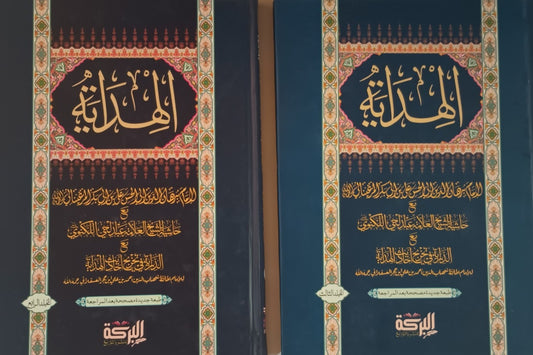 الهداية
للإمام برهان الدين أبي الحسن علي بن أبي بكر المرغيناني
مع
حاشية الشيخ العلامة عبد الحي اللكنوي
مع
الدراية في تخريج أحاديث الهداية
طبعة جديدة مصححة بعد المراجعة
المجلد الرابع
البركة
الهداية
للإمام برهان الدين أبي الحسن علي بن أبي بكر المرغيناني
مع
حاشية الشيخ العلامة عبد الحي اللكنوي
مع
الدراية في تخريج أحاديث الهداية
طبعة جديدة مصححة بعد المراجعة
المجلد الثالث
البركة